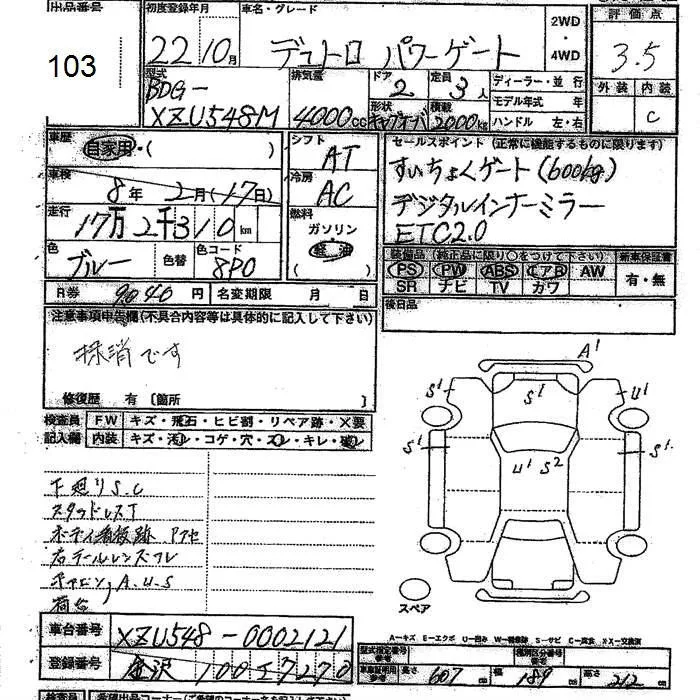 出品番号
103
初度登録年月
22 10月
車名・グレード
デュトロ パワーゲート
2WD
・
4WD
評価点
3.5
外装 内装
C
型式
BDG-
XZU548M
排気量
4000cc
ドア
2
定員
3人
形状
キャブオーバ
積載
2000kg
ディーラー・並行
モデル年式 年
ハンドル 左・右
車歴
自家用・( )
車検
8年 2月(17日)
走行
17万2千310km
色
ブルー
色替
色コード
8P0
シフト
AT
冷房
AC
燃料
ガソリン
軽油
セールスポイント (正常に機能するものに限ります)
すいちょくゲート(600kg)
デジタルインナーミラー
ETC2.0
装備品 (純正品に限り○をつけて下さい)
PS PW ABS エアB AW
SR ナビ TV カワ
新車保証書
有・無
後日品
R券 9040円 名変期限 月 日
注意事項申告欄(不具合内容等は具体的に記入して下さい)
抹消です
修復歴 有 〔箇所 〕
検査員
記入欄
FW キズ・飛石・ヒビ割・リペア跡・X要
内装 キズ・汚レ・コゲ・穴・スレ・キレ・破レ
下廻りS.C
スタッドレスT
ボディ看板跡 アクセ
右テールレンズワレ
キャビン,A.U.S
荷台
A1
S1 S1 U1
S1 S1
U1 S2
スペア
A-キズ E-エクボ U-凹み W-補修跡 S-サビ C-腐食 X-要交換 XX-交換済
車台番号 XZU548-0002121
登録番号 金沢 100 す7270
型式指定番号
参考
類別区分番号
参考
車庫証明用
参考
長さ 607cm 幅 189cm 高さ 212cm
検査員